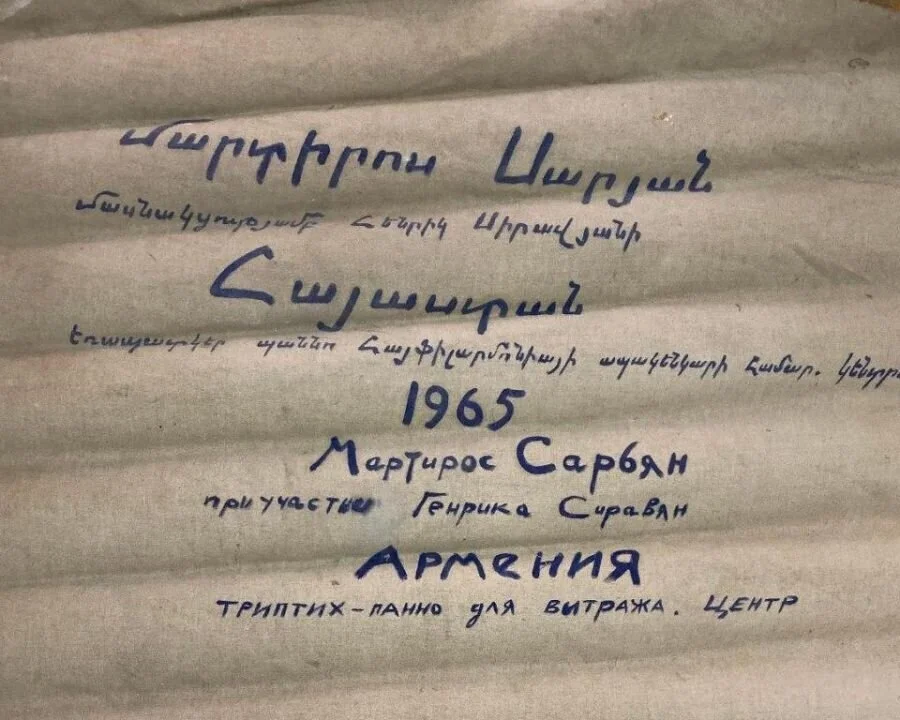 Մարտիրոս Սարյան
Մասնակցությամբ Հենրիկ Սիրավյանի
Հայաստան
Եռապատկեր պաննո Հայֆիլարմոնիայի ապակենկարի համար. կենտրո
1965
Мартирос Сарьян
при участии Генрика Сиравян
Армения
триптих-панно для витража. центр